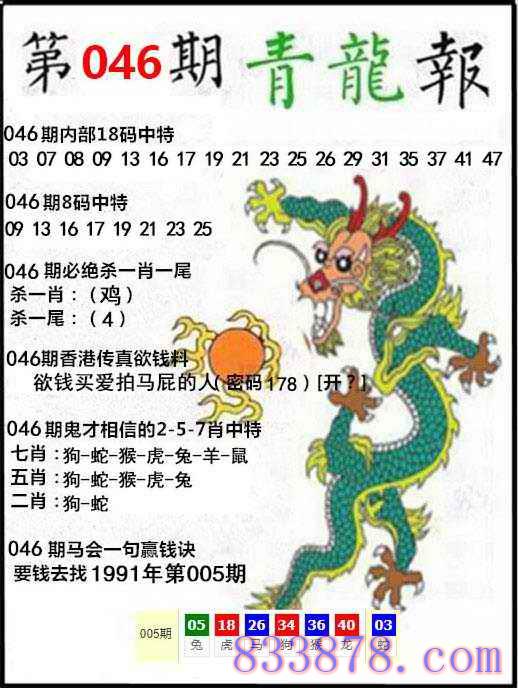 第046期 青龍報
046期内部18码中特
03 07 08 09 13 16 17 19 21 23 25 26 29 31 35 37 41 47
046期8码中特
09 13 16 17 19 21 23 25
046 期必绝杀一肖一尾
杀一肖：（鸡）
杀一尾：（4）
046期香港传真欲钱料
欲钱买爱拍马屁的人（密码178）[开？]
046期鬼才相信的2-5-7肖中特
七肖：狗-蛇-猴-虎-兔-羊-鼠
五肖：狗-蛇-猴-虎-兔
二肖：狗-蛇
046 期马会一句赢钱诀
要钱去找1991年第005期
005期 05 18 26 34 36 40 03
兔 虎 马 狗 猴 龙 蛇
833878.com